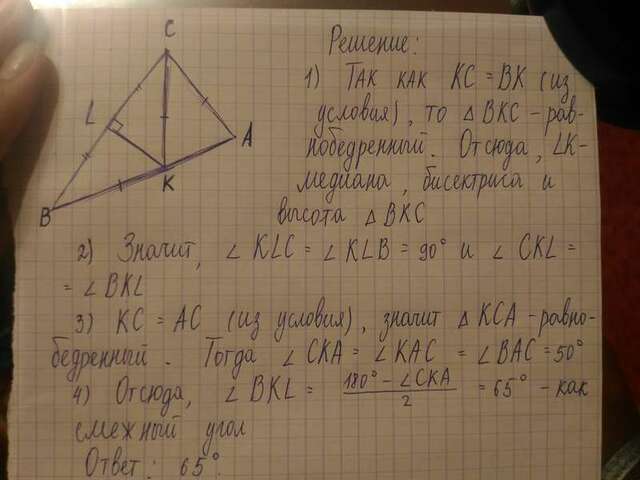 C
L
A
K
B
Решение:
1) Так как KC = BK (из
условия), то △ BKC – рав-
нобедренный. Отсюда, LK –
медиана, бисектриса и
высота △ BKC
2) Значит, ∠ KLC = ∠ KLB = 90° и ∠ CKL =
= ∠ BKL
3) KC = AC (из условия), значит △ KCA – равно-
бедренный. Тогда ∠ CKA = ∠ KAC = ∠ BAC = 50°
4) Отсюда, ∠ BKL = (180° – ∠CKA)/2 = 65° – как
смежный угол
Ответ: 65°.